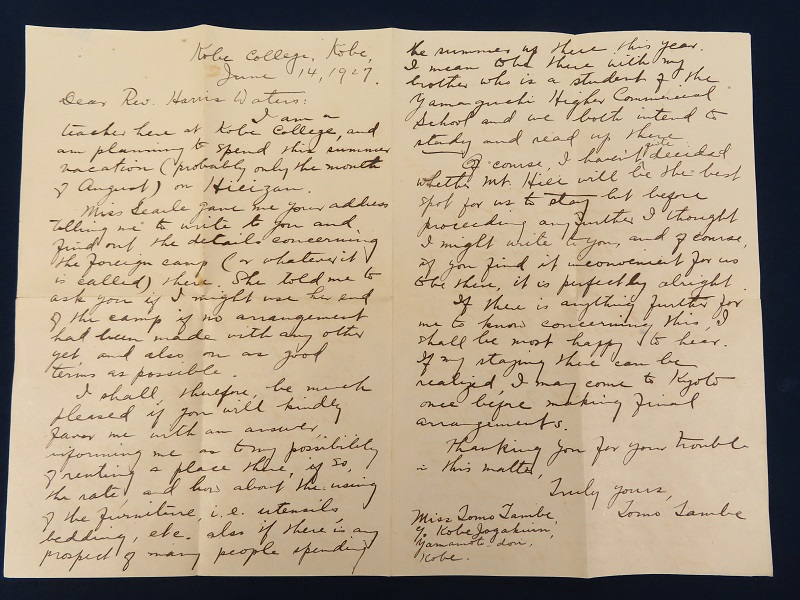 Kobe College, Kobe,
June 14, 1927.
Dear Rev. Harris Waters:
I am a
teacher here at Kobe College, and
am planning to spend this summer
vacation (probably only the month
of August) on Hieizan.
Miss Searle gave me your address
telling me to write to you and
find out the details concerning
the foreign camp (or whatever it
is called) there. She told me to
ask you if I might use her end
of the camp if no arrangement
had been made with any other
yet, and also on as good
terms as possible.
I shall, therefore, be much
pleased if you will kindly
favor me with an answer
informing me as to my possibility
of renting a place there, if so,
the rate, and how about the using
of the furniture, i.e. utensils
bedding, etc. also if there is any
prospect of many people spending
the summer up there this year.
I mean to be there with my
brother who is a student of the
Yamaguchi Higher Commercial
School and we both intend to
study and read up there.
Of course, I haven't quite decided
whether Mt. Hiei will be the best
spot for us to stay but before
proceeding any further I thought
I might write to you, and of course,
if you find it inconvenient for us
to be there, it is perfectly alright.
If there is anything further for
me to know concerning this, I
shall be most happy to hear.
If my staying there can be
realized, I may come to Kyoto
once before making final
arrangements.
Thanking you for your trouble
in this matter,
Truly yours,
Tomo Tambe
Miss Tomo Tambe,
c/o Kobe Jogakuin,
Yamamoto-dori,
Kobe.